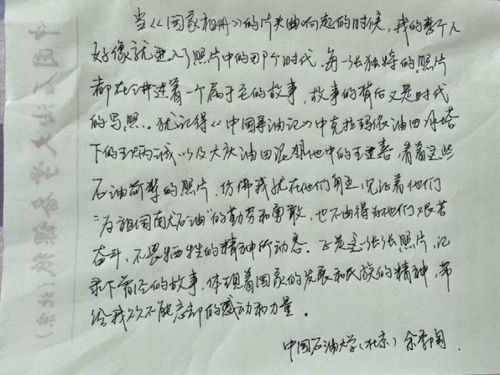 当《国家相册》的片头曲响起的时候，我的整个人
好像就进入了照片中的那个时代。每一张独特的照片
都在讲述着一个属于它的故事，故事的背后又是时代
的写照。犹记得《中国寻油记》中克拉玛依油田井塔
下的王炳诚以及大庆油田泥浆池中的王进喜，看着这些
石油前辈的照片，仿佛我就在他们身边，见证着他们
“为祖国献石油”的勤劳和勇敢，也不由得为他们艰苦
奋斗、不畏牺牲的精神所动容。正是这一张张照片，记
录下曾经的故事，体现着国家的发展和民族的精神，带
给我久久不能忘却的感动和力量。
中国石油大学（北京） 余
中国石油大学
（北京）